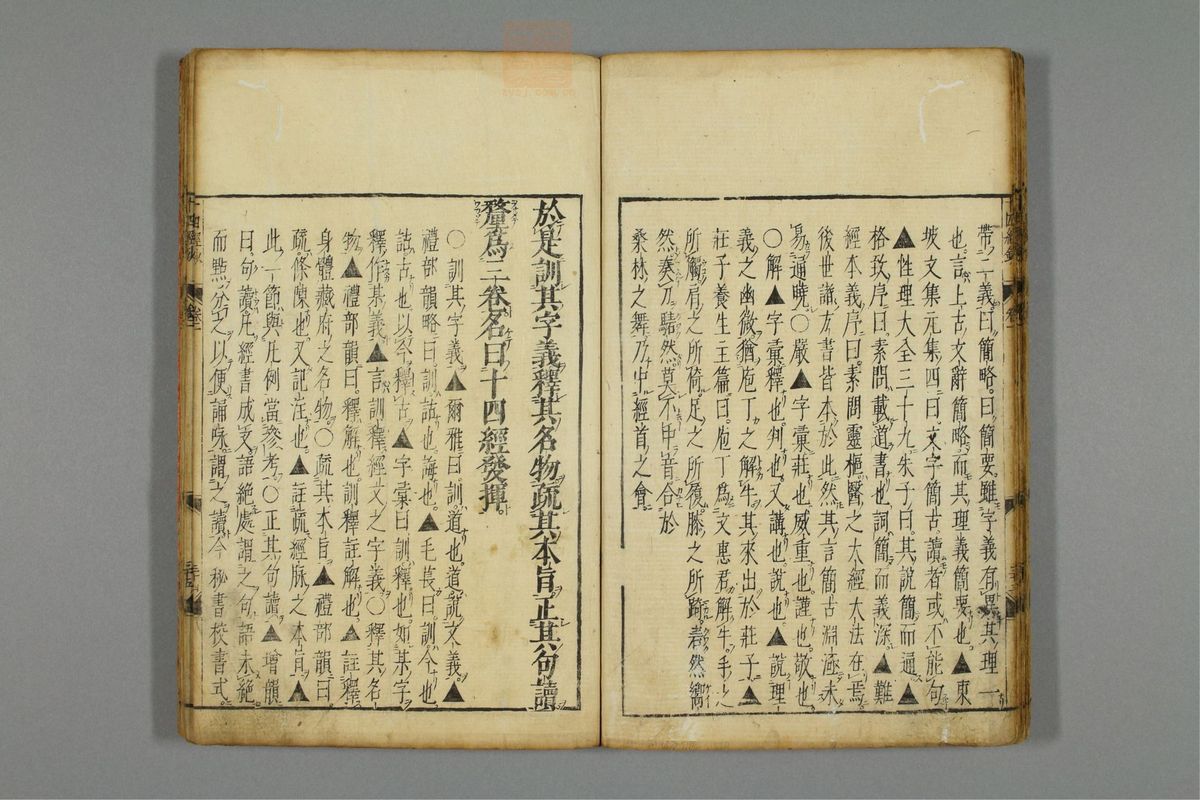 帶ノ二義曰簡略曰簡要雖字義有異其理一
也言上古文辭簡略而其理義簡要也▲東
坡文集元集四曰文字簡古讀者或不能句
▲性理大全三十九朱子曰其說簡而通▲
格致序曰素問載道書也詞簡而義深▲難
經本義序曰素問靈樞醫之大經大法在焉
後世諸方書皆本於此然其言簡古淵涵未
易通曉○嚴▲字彙莊也威重也謹也敬也
○解▲字彙釋也判也又講也說也▲說理
義之幽微猶庖丁之解牛其來出於莊子▲
莊子養生主篇曰庖丁為文惠君解牛手之
所觸肩之所倚足之所履膝之所踦砉然嚮
然奏刀騞然莫不中音合於
桑林之舞乃中經首之會
於是訓其字義釋其名物疏其本旨正其句讀
釐為三卷名曰十四經發揮
○訓其字義▲爾雅曰訓道也道說文義▲
禮部韻略曰訓詁也誨也▲毛萇曰訓今也
詁古也以今釋古▲字彙曰訓釋也如某字
釋作某義▲言訓釋經文之字義○釋其名
物▲禮部韻曰釋解也訓釋註解也▲註釋
身體藏府之名物○疏其本旨▲禮部韻曰
疏條陳也又記注也▲註疏經脉之本旨▲
此一節與凡例當參考○正其句讀▲增韻
曰句讀凡經書成文語絕處謂之句語未絕
而點分之以便誦咏謂之讀今秘書校書式